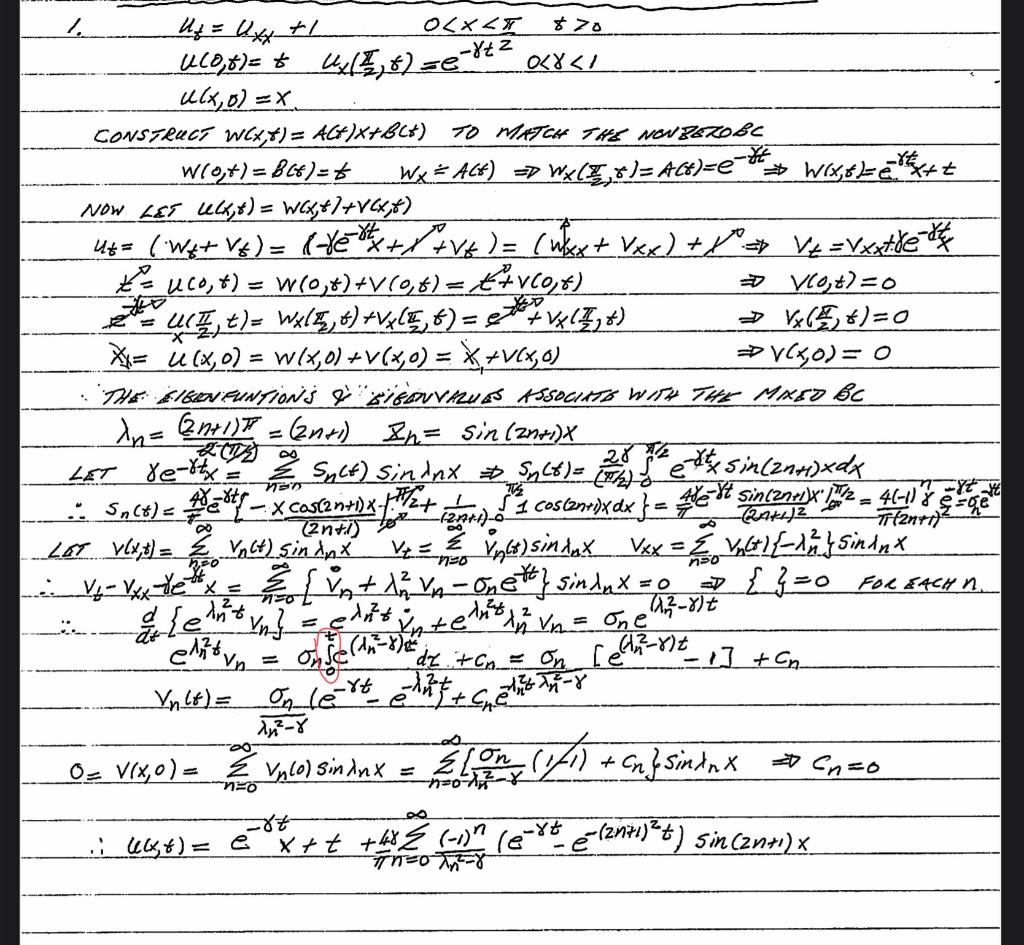 1. u_t = u_xx + 1 0<x<π t>0
u(0,t) = t u_x(π/2,t) = e^{-γt 2} 0<γ<1
u(x,0) = x.
CONSTRUCT W(x,t) = A(t)x+B(t) TO MATCH THE NONZERO BC
W(0,t) = B(t) = t W_x = A(t) ⇒ W_x(π/2,t) = A(t) = e^{-γt} ⇒ W(x,t) = e^{-γt}x+t
NOW LET u(x,t) = W(x,t)+V(x,t)
u_t = (W_t + V_t) = (-γe^{-γt}x + 1 + V_t) = (W_xx + V_xx) + 1 ⇒ V_t = V_xx + γe^{-γt}x
t = u(0,t) = W(0,t)+V(0,t) = t+V(0,t) ⇒ V(0,t) = 0
e^{-γt} = u_x(π/2,t) = W_x(π/2,t)+V_x(π/2,t) = e^{-γt}+V_x(π/2,t) ⇒ V_x(π/2,t) = 0
x = u(x,0) = W(x,0)+V(x,0) = x+V(x,0) ⇒ V(x,0) = 0
∴ THE EIGENFUNTIONS & EIGENVALUES ASSOCIATE WITH THE MIXED BC
λ_n = (2n+1)π/2(π/2) = (2n+1) X_n = sin(2n+1)x
LET γe^{-γt}x = Σ_{n=0}^∞ S_n(t) sin λ_n x ⇒ S_n(t) = 2γ/(π/2) ∫_0^{π/2} e^{-γt} x sin(2n+1)x dx
∴ S_n(t) = 4γ/π e^{-γt} { -x cos(2n+1)x/(2n+1) |_0^{π/2} + 1/(2n+1) ∫_0^{π/2} 1 cos(2n+1)x dx } = 4γ/π e^{-γt} sin(2n+1)x/(2n+1)^2 |_0^{π/2} = 4(-1)^n γ/π(2n+1)^2 e^{-γt} = σ_n e^{-γt}
LET V(x,t) = Σ_{n=0}^∞ V_n(t) sin λ_n x V_t = Σ_{n=0}^∞ V̇_n(t) sin λ_n x V_xx = Σ_{n=0}^∞ V_n(t){-λ_n^2} sin λ_n x
∴ V_t - V_xx - γe^{-γt}x = Σ_{n=0}^∞ { V̇_n + λ_n^2 V_n - σ_n e^{-γt} } sin λ_n x = 0 ⇒ { } = 0 FOR EACH n.
∴ d/dt { e^{λ_n^2 t} V_n } = e^{λ_n^2 t} V̇_n + e^{λ_n^2 t} λ_n^2 V_n = σ_n e^{(λ_n^2-γ)t}
e^{λ_n^2 t} V_n = σ_n ∫_0^t e^{(λ_n^2-γ)τ} dτ + c_n = σ_n/(λ_n^2-γ) [e^{(λ_n^2-γ)t} - 1] + c_n
V_n(t) = σ_n/(λ_n^2-γ) (e^{-γt} - e^{-λ_n^2 t}) + c_n e^{-λ_n^2 t}
0 = V(x,0) = Σ_{n=0}^∞ V_n(0) sin λ_n x = Σ_{n=0}^∞ { σ_n/(λ_n^2-γ) (1-1) + c_n } sin λ_n x ⇒ c_n = 0
∴ u(x,t) = e^{-γt} x + t + 4γ/π Σ_{n=0}^∞ (-1)^n/(λ_n^2-γ) (e^{-γt} - e^{-(2n+1)^2 t}) sin(2n+1)x